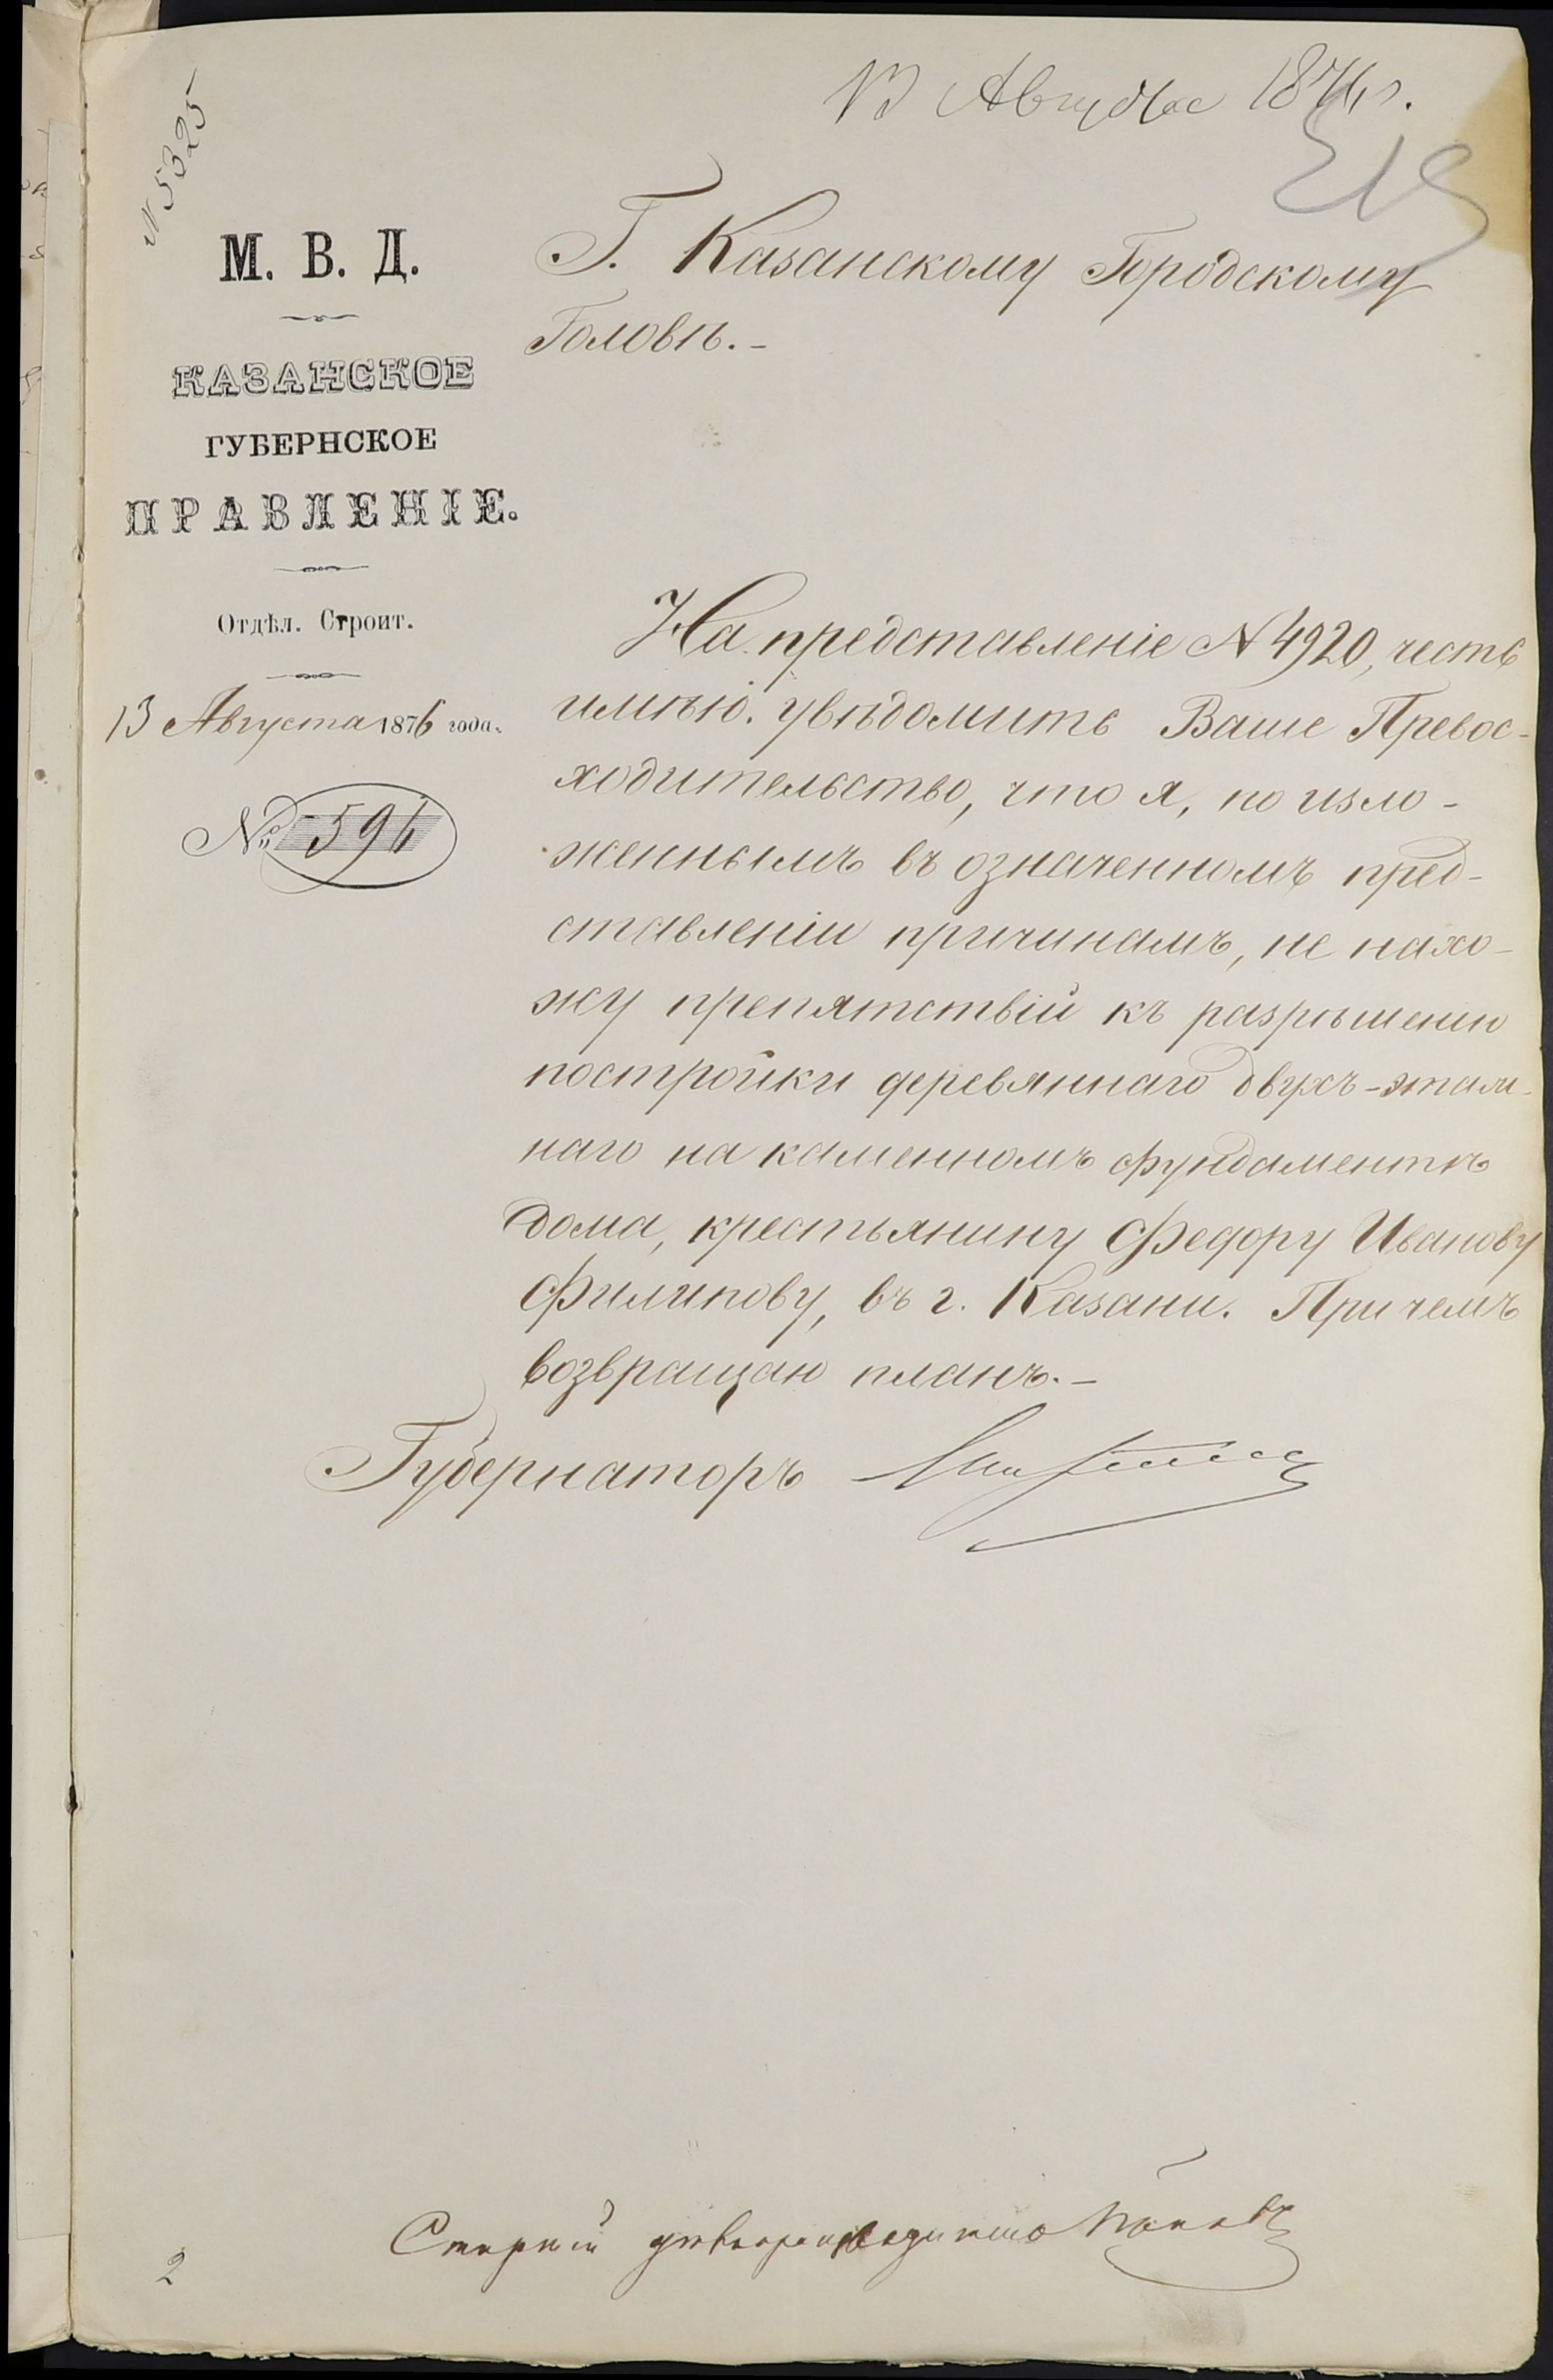 13 Августа 1876 г.
N 5325
М. В. Д.
КАЗАНСКОЕ
ГУБЕРНСКОЕ
ПРАВЛЕНІЕ.
Отдѣл. Строит.
13 Августа 1876 года.
№ 596
Г. Казанскому Городскому
Головѣ.-
На представленіе N 4920, честь
имѣю увѣдомить Ваше Превос-
ходительство, что я, по изло-
женнымъ въ означенномъ пред-
ставленіи причинамъ, не нахо-
жу препятствій къ разрѣшенію
постройки деревяннаго двухъ-этаж-
наго на каменномъ фундаментѣ
дома, крестьянину Федору Иванову
Филипову, въ г. Казани. При чемъ
возвращаю планъ.-
Губернаторъ
Старшій дѣлопроизводитель Поповъ
2